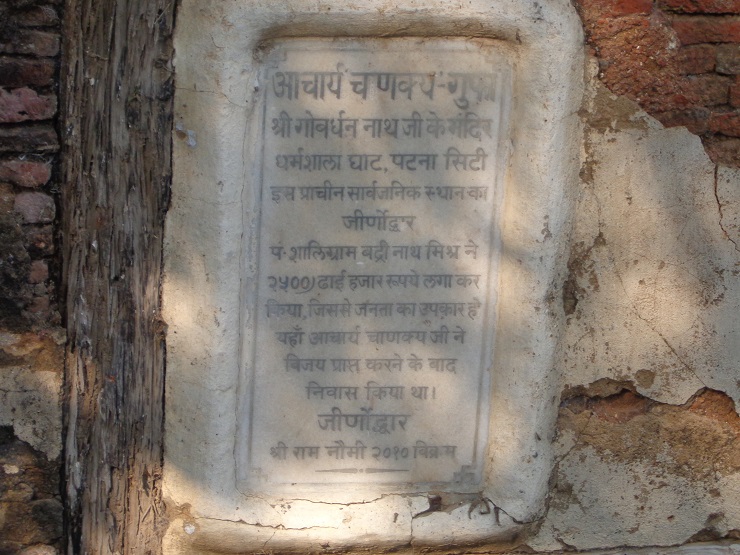 आचार्य चाणक्य-गुफा
श्री गोवर्धन नाथ जी के मंदिर
धर्मशाला घाट, पटना सिटी
इस प्राचीन सार्वजनिक स्थान का
जीर्णोद्वार
प॰ शालिग्राम बद्री नाथ मिश्र ने
२५००) ढाई हजार रूपये लगा कर
किया, जिससे जनता का उपकार हो
यहाँ आचार्य चाणक्य जी ने
विजय प्राप्त करने के बाद
निवास किया था।
जीर्णोद्वार
श्री राम नौमी २०१० विक्रम